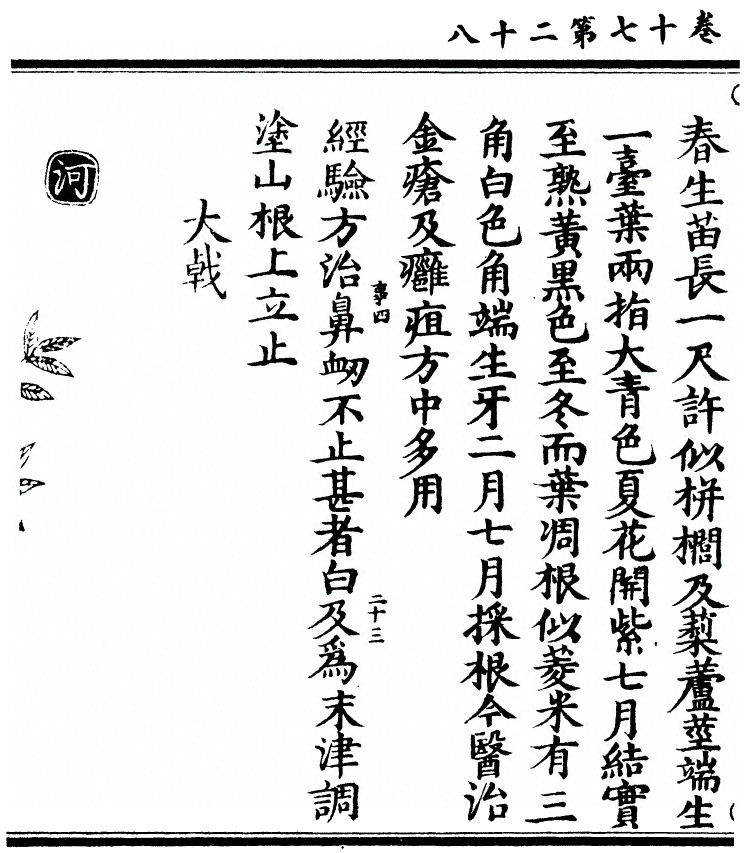 卷十七第二十八
春生苗長一尺許似栟櫚及藜蘆莖端生
一臺葉兩指大青色夏花開紫七月結實
至熟黃黑色至冬而葉凋根似菱米有三
角白色角端生牙二月七月採根今醫治
金瘡及癰疽方中多用
事四
二十三
經驗方治鼻衂不止甚者白及爲末津調
塗山根上立止
大戟
河